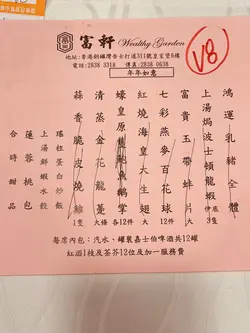 富軒 Wealthy Garden
地址：香港銅鑼灣告士打道311號皇室堡6樓
電話：2838 3318 傳真：2838 0638
V8
年年如意
鴻運乳豬全體
上湯焗波士頓龍蝦伊底 3隻
富貴玉帶蚌片 大
七彩燕麥百花球 12件
紅燒海皇大生翅 各12件
蠔皇原隻鮑魚鵝掌
清蒸金花龍躉 大條
蒜香脆皮燒雞 1隻
瑤柱蛋白炒飯
上湯鮮蝦水餃
蓮蓉桃包
合時甜品
每席內包：汽水、罐裝嘉士伯啤酒共12罐
紅酒1枝及茶芥12位及加一服務費